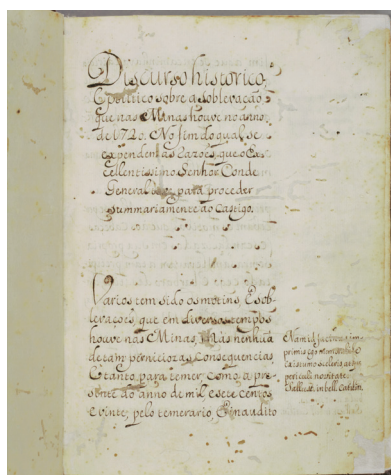 Discurso historico,
E politico sobre a sobleuação,
que nas Minas houve no anno
de 1720. No fim do qual se
expendem as Razoẽs, que o Ex-
cellentissimo Senhor Conde
General teve para proceder
summariamente ao Castigo.
Varios tem sido os motins, E sob-
levaçoẽs, que em diversos tempos
houve nas Minas, Mas nenhũa
de tam perniciozas consequencias,
E tanto para temer, como a pre-
sente do anno de mil e sete centos
e vinte; pelo temerario, E inaudito
Nam id facinus in
primis ego memorabile
existumo sceleris, atque
periculi novitate.
Sallust. in bell. Catilin.